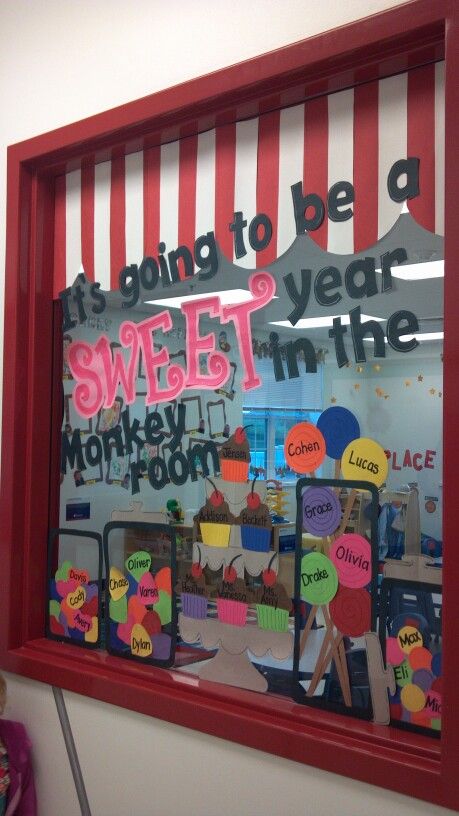 It's going to be a
SWEET year
in the
Monkey
room
PLACE
Jensen
Addison
Beckett
Ms. Baxter
Ms. Vanessa
Ms. Amy
Cohen
Lucas
Grace
Olivia
Drake
Davis
Cody
Avery
Oliver
Chase
Karen
Dylan
Max
Eli